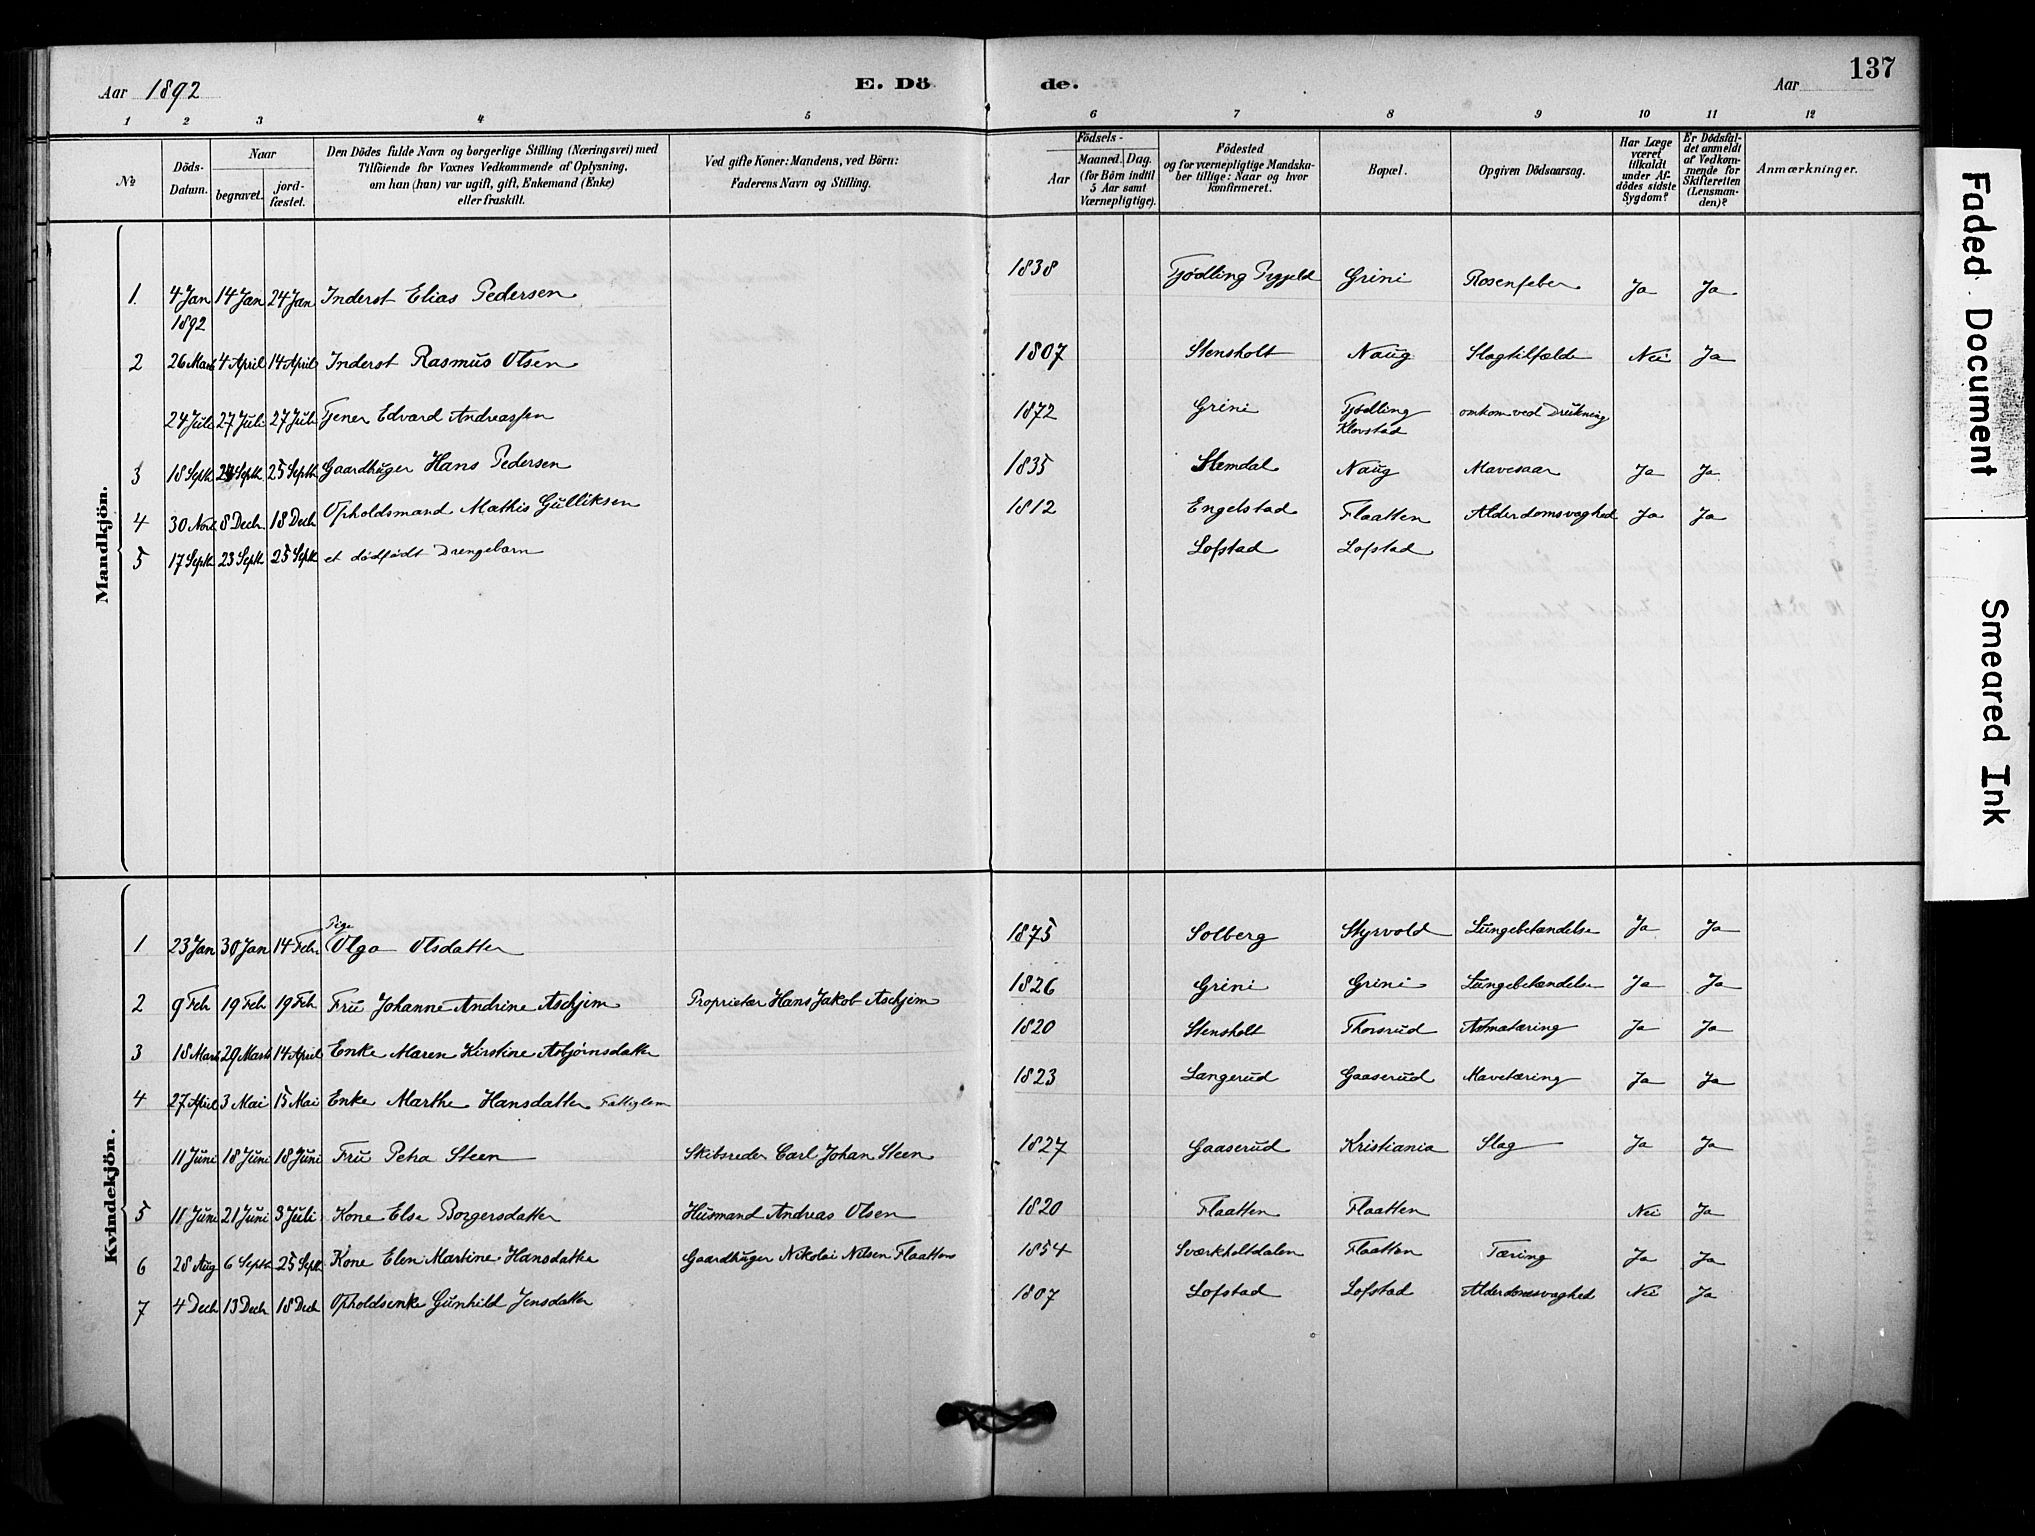 137
Aar 1892
E. Dö
de.
Aar
1 2 3 4 5 6 7 8 9 10 11 12
№
Döds-Datum.
Naar
begravet.
jord-fæstet.
Den Dödes fulde Navn og borgerlige Stilling (Næringsvei) med
Tilföiende for Voxnes Vedkommende af Oplysning,
om han (hun) var ugift, gift, Enkemand (Enke)
eller fraskilt.
Ved gifte Koner: Mandens, ved Börn:
Faderens Navn og Stilling.
Födsels-
Aar
Maaned. Dag.
(for Börn indtil
5 Aar samt
Værnepligtige).
Födested
og for værnepligtige Mandska-
ber tillige: Naar og hvor
konfirmeret.
Bopæl.
Opgiven Dödsaarsag.
Har Læge
været
tilkaldt
under Af-
dödes sidste
Sygdom?
Er Dödsfal-
det anmeldt
af Vedkom-
mende for
Skifteretten
(Lensman-
den)?
Anmærkninger.
Mandkjön.
1. 4 Jan 1892 14 Jan 24 Jan Inderst Elias Pedersen 1838 Tjødling Grini Rosenfeber Ja Ja
2 26 Mart 4 April 14 April Inderst Rasmus Olsen 1807 Stensholt Naug Slagtilfælde Nei Ja
24 Juli 27 Juli 27 Juli Tjener Edvard Andreassen 1872 Grini Tjødling Klovstad omkom ved Drukning
3 18 Septb 24 Septb 25 Septb Gaardbruger Hans Pedersen 1835 Stemdal Naug Mavesaar Ja Ja
4 30 Novb 8 Decb 18 Decb Opholdsmand Mathis Gulliksen 1812 Engelstad Flaatten Alderdomsvaghed Ja Ja
5 17 Septb 23 Septb 25 Septb et dødfødt Drengebarn Lofstad Lofstad
Kvindekjön.
1 23 Jan 30 Jan 14 Febr Pige Olga Olsdatter 1875 Solberg Styrvold Lungebetændelse Ja Ja
2 9 Feb 19 Feb 19 Feb Fru Johanne Andrine Aschjem Proprietær Hans Jakob Aschjem 1826 Grini Grini Lungebetændelse Ja Ja
3 18 Mart 29 Mart 14 April Enke Maren Kirstine Asbjørnsdatter 1820 Stensholt Thorsrud Ja Ja
4 27 April 3 Mai 15 Mai Enke Marthe Hansdatter Fattiglem 1823 Langerud Gaaserud Mavetæring Ja Ja
11 Juni 18 Juni 18 Juni Fru Petra Steen Skibsreder Carl Johan Steen 1827 Gaaserud Kristiania Slag Ja Ja
5 11 Juni 21 Juni 3 Juli Kone Else Borgersdatter Husmand Andreas Olsen 1820 Flaatten Flaatten Nei Ja
6 28 Aug 6 Septb 25 Septb Kone Elen Martine Hansdatter Gaardbruger Nikolai Nilsen Flaatten 1854 Sværkholtdalen Flaatten Tæring Ja Ja
7 4 Decb 13 Decb 18 Decb Opholdsenke Gunhild Jensdatter 1807 Lofstad Lofstad Alderdomsvaghed Nei Ja
Faded Document
Smeared Ink